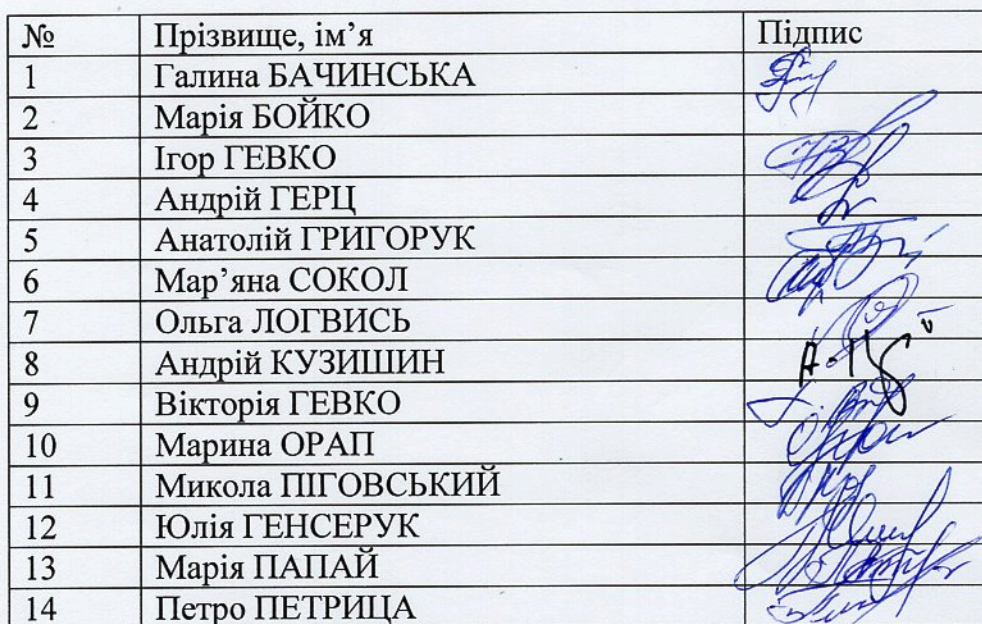 № Прізвище, ім’я Підпис
1 Галина БАЧИНСЬКА
2 Марія БОЙКО
3 Ігор ГЕВКО
4 Андрій ГЕРЦ
5 Анатолій ГРИГОРУК
6 Мар’яна СОКОЛ
7 Ольга ЛОГВИСЬ
8 Андрій КУЗИШИН
9 Вікторія ГЕВКО
10 Марина ОРАП
11 Микола ПІГОВСЬКИЙ
12 Юлія ГЕНСЕРУК
13 Марія ПАПАЙ
14 Петро ПЕТРИЦА